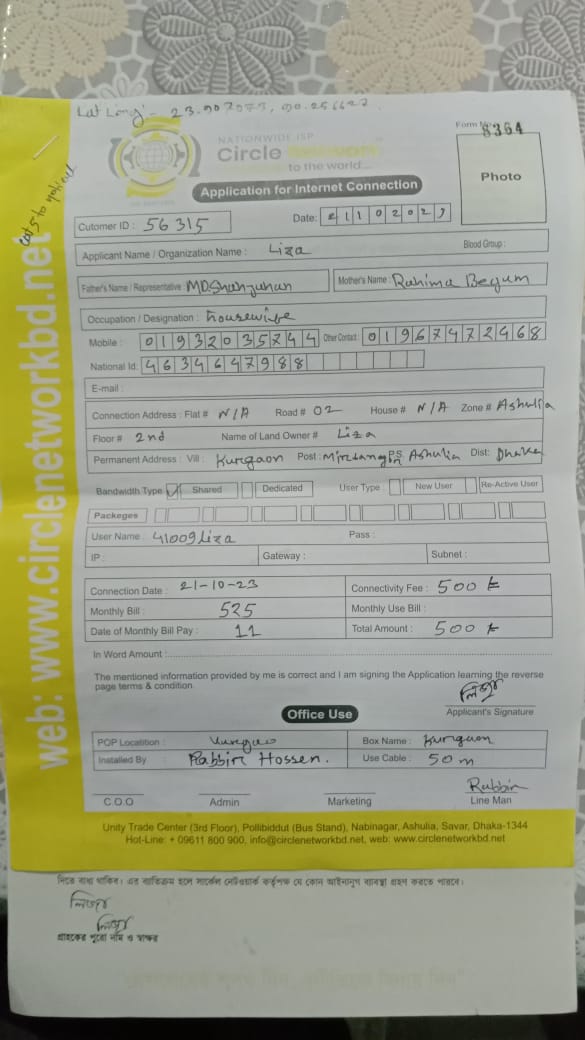 Lat Long -
Form No.
8364
NATIONWIDE ISP
Circle
to the world...
Photo
Application for Internet Connection
Cutomer ID : 56315 Date:
Applicant Name / Organization Name : Liza Blood Group :
Father's Name / Representative : MD.Shahjahan Mother's Name : Rahima Begum
Occupation / Designation : Housewife
Mobile : 01932035744 Other Contact : 01967472468
National Id: 4634647988
E-mail :
Connection Address : Flat # N/A Road # 02 House # N/A Zone # Ashulia
Floor # 2nd Name of Land Owner # Liza
Permanent Address : Vill : Kurgaon Post : P.S Ashulia Dist: Dhaka
Bandwidth Type Shared Dedicated User Type : New User Re-Active User
Packeges
User Name : 41009Liza Pass :
IP : Gateway : Subnet :
Connection Date : 21-10-23 Connectivity Fee : 500 tk
Monthly Bill : 525 Monthly Use Bill :
Date of Monthly Bill Pay : 11 Total Amount : 500 tk
In Word Amount :
The mentioned information provided by me is correct and I am signing the Application learning the reverse
page terms & condition
লিজা
Applicant's Signature
Office Use
POP Localtition : Box Name : Kurgaon
Installed By Rabbin Hossen. Use Cable : 50m
Rabbin
C.O.O Admin Marketing Line Man
Unity Trade Center (3rd Floor), Pollibiddut (Bus Stand), Nabinagar, Ashulia, Savar, Dhaka-1344
Hot-Line: + 09611 800 900, info@circlenetworkbd.net, web: www.circlenetworkbd.net
web: www.circlenetworkbd.net
দিতে বাধ্য থাকিব। এর ব্যতিক্রম হলে সার্কেল নেটওয়ার্ক কর্তৃপক্ষ যে কোন আইনানুগ ব্যবস্থা গ্রহণ করতে পারবে।
লিজা
লিজা
গ্রাহকের পুরো নাম ও স্বাক্ষর